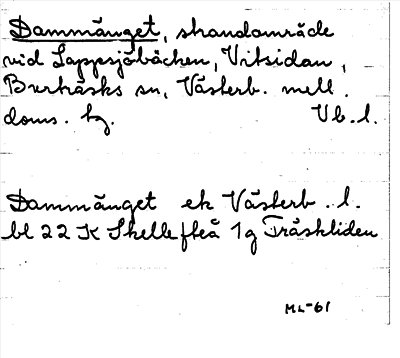 Dammänget, strandområde
vid Lappsjöbäcken, Vitsidan,
Burträsks sn, Västerb. mell.
doms. hg. Vb.l.
Dammänget ek Västerb. l.
bl 22 K Skellefteå 1g Träskliden
ML-61